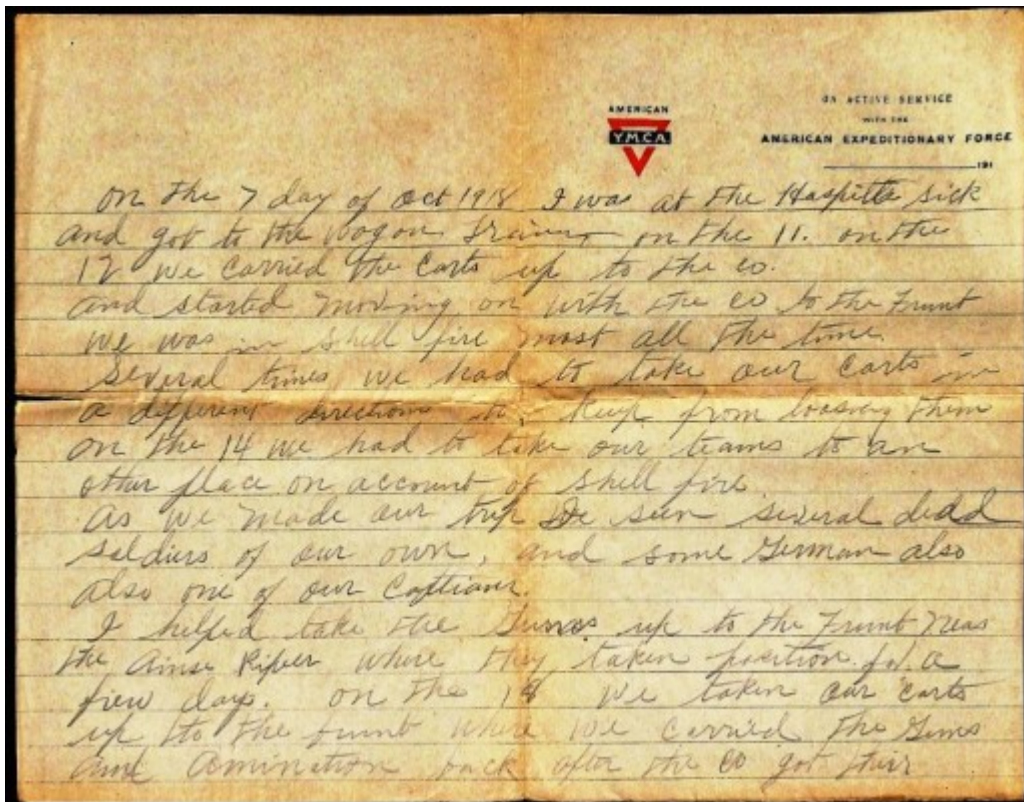 AMERICAN
YMCA
ON ACTIVE SERVICE
WITH THE
AMERICAN EXPEDITIONARY FORCE
191
on the 7 day of oct 1918 I was at the Haspitle sick
and got to the wagon on the 11. on the
12 we carried the carts up to the co.
and started moving on with the co to the Frunt
we was in shell fire most all the time
Several times we had to take our carts in
a different directions to keep from them
on the 14 we had to take our teams to an
other place on account of shell fire
As we made our trip we seen several dead
soldiers of our own, and some German also
also one of our
I helped take the up to the Frunt near
the where they taken position for a
few days. on the 18 we taken our carts
up to the frunt where we carried the Guns
and Amination back after the co got their